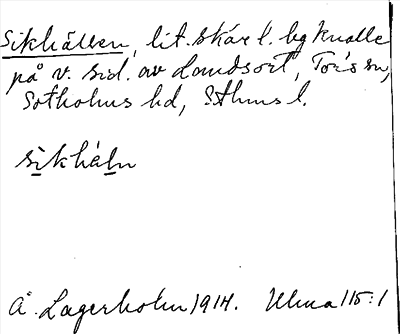 Sikhällen, lit. skär l. bg knalle
på v. sid. av Landsort, Torö sn,
Sotholms hd, Sthms l.
sikhäln
Å. Lagerholm 1914. Ulma 115:1